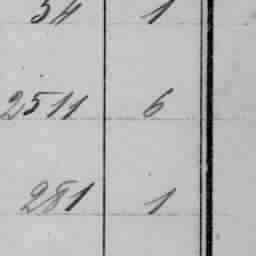 34 1
2511 6
281 1